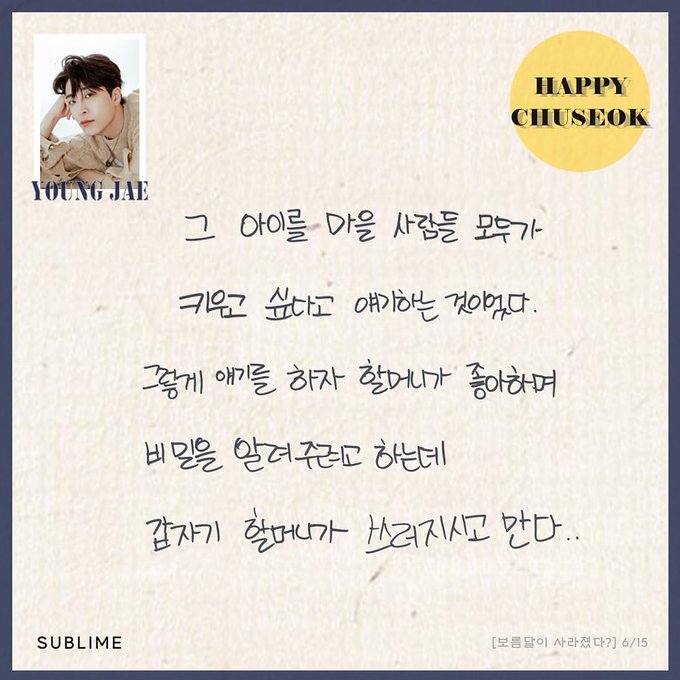 YOUNG JAE
HAPPY
CHUSEOK
그 아이를 마을 사람들 모두가
키우고 싶다고 얘기하는 것이었다.
그렇게 얘기를 하자 할머니가 좋아하며
비밀을 알려주려고 하는데
갑자기 할머니가 쓰러지시고 만다..
SUBLIME
[보름달이 사라졌다?] 6/15